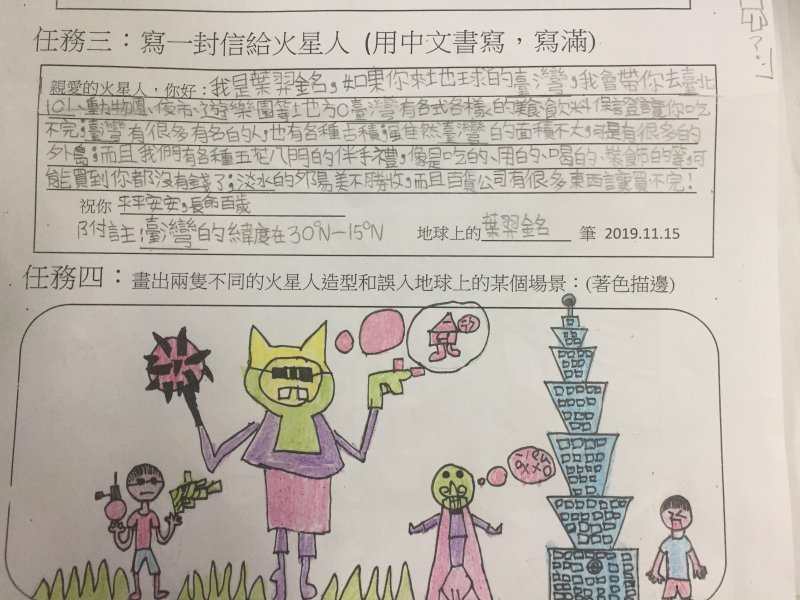 任務三：寫一封信給火星人 (用中文書寫，寫滿)
親愛的火星人，你好：我是葉羿銘，如果你來地球的臺灣，我會帶你去臺北
101、動物園、夜市、遊樂園等地方。臺灣有各式各樣的美食飲料保證讓你吃
不完；臺灣有很多有名的人，也有各種古積；雖然臺灣的面積不大，可是有很多的
外島；而且我們有各種五花八門的伴手禮，像是吃的、用的、喝的、裝飾的等，可
能買到你都沒有錢了；淡水的夕陽美不勝收，而且百貨公司有很多東西讓買不完！
祝你 平平安安，長命百歲
附註：臺灣的緯度在30°N－15°N 地球上的葉羿銘 筆 2019.11.15
任務四：畫出兩隻不同的火星人造型和誤入地球上的某個場景：(著色描邊)